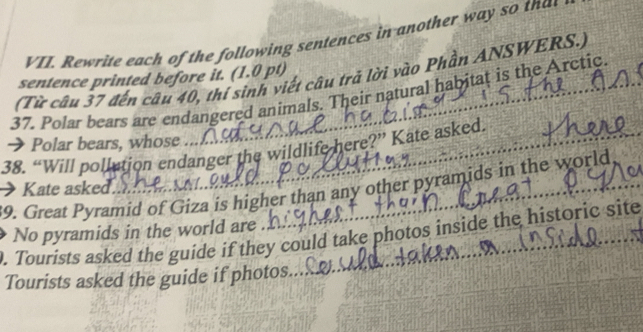 VII. Rewrite each of the following sentences in another way so that
sentence printed before it. (1.0 pt)
(Từ câu 37 đến câu 40, thí sinh viết câu trả lời vào Phần ANSWERS.)
37. Polar bears are endangered animals. Their natural habitat is the Arctic.
→ Polar bears, whose natural habitat is the
38. “Will pollution endanger the wildlife here?” Kate asked. there
→ Kate asked she would pollution
39. Great Pyramid of Giza is higher than any other pyramids in the world.
→ No pyramids in the world are highest than Great
. Tourists asked the guide if they could take photos inside the historic site
Tourists asked the guide if photos could taken inside